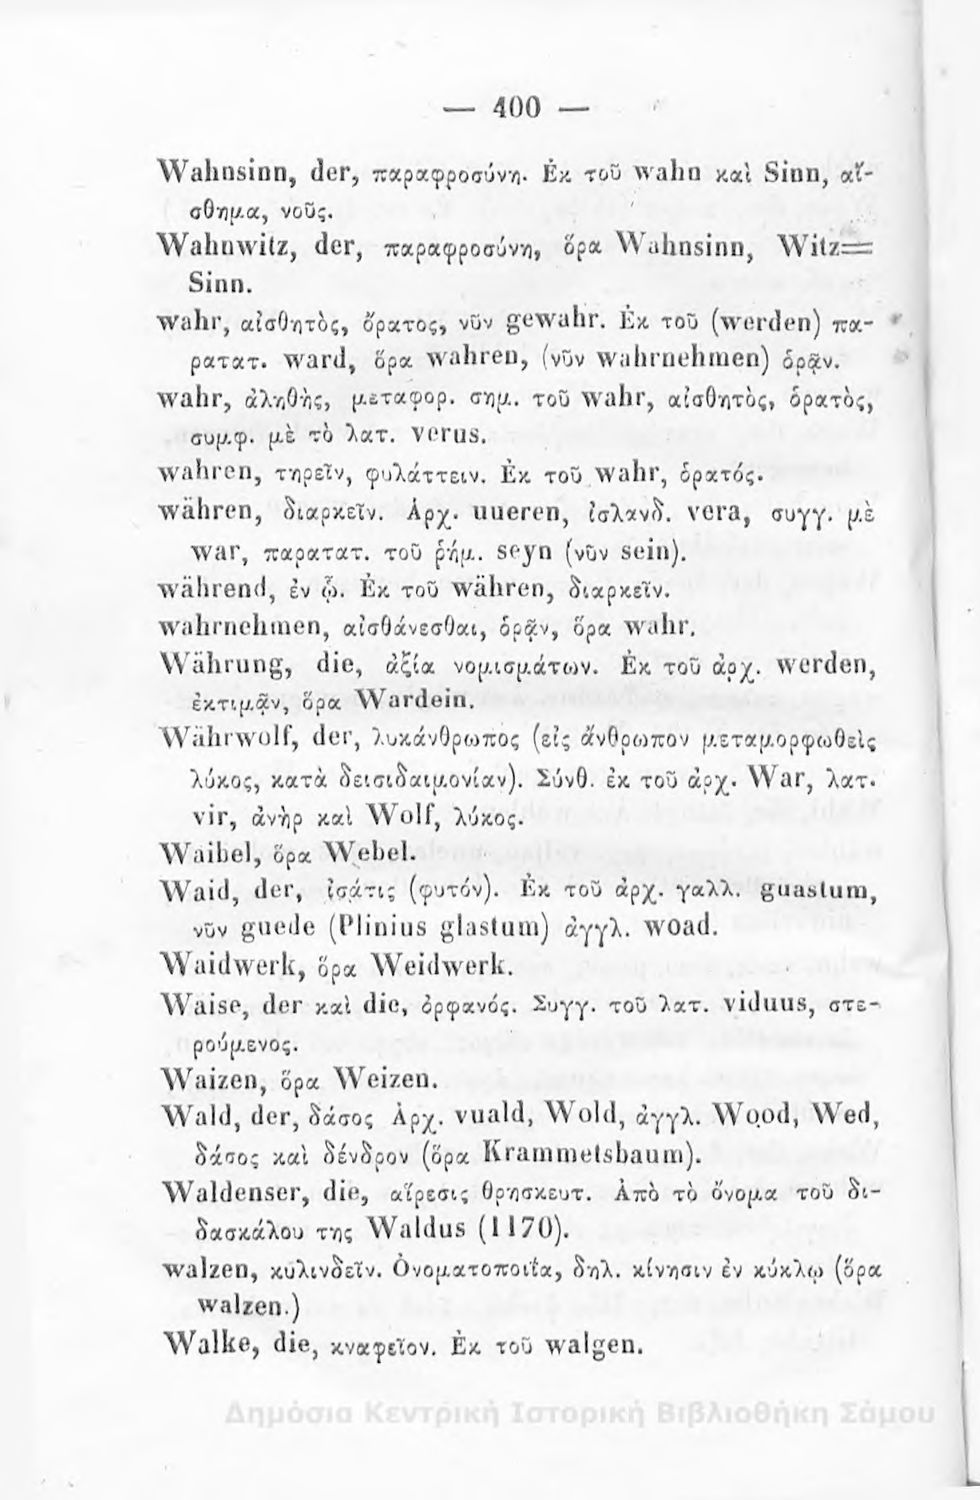 — 400 —
Wahnsinn, der, παραφροσύνη. Ἐκ τοῦ wahn καὶ Sinn, αἴ-
σθημα, νοῦς.
Wahnwitz, der, παραφροσύνη, ὅρα Wahnsinn, Witz=
Sinn.
wahr, αἰσθητὸς, ὄρατος, νῦν gewahr. Ἐκ τοῦ (werden) πα-
ρατατ. ward, ὅρα wahren, (νῦν wahrnehmen) ὁρᾷν.
wahr, ἀληθὴς, μεταφορ. σημ. τοῦ wahr, αἰσθητὸς, ὁρατὸς,
συμφ. μὲ τὸ λατ. verus.
wahren, τηρεῖν, φυλάττειν. Ἐκ τοῦ wahr, ὁρατός.
währen, διαρκεῖν. Ἀρχ. uueren, ἰσλανδ. vera, συγγ. μὲ
war, παρατατ. τοῦ ῥήμ. seyn (νῦν sein).
während, ἐν ᾧ. Ἐκ τοῦ währen, διαρκεῖν.
wahrnehmen, αἰσθάνεσθαι, ὁρᾷν, ὅρα wahr.
Währung, die, ἀξία νομισμάτων. Ἐκ τοῦ ἀρχ. werden,
ἐκτιμᾷν, ὅρα Wardein.
Währwolf, der, λυκάνθρωπος (εἰς ἄνθρωπον μεταμορφωθεὶς
λύκος, κατὰ δεισιδαιμονίαν). Σύνθ. ἐκ τοῦ ἀρχ. War, λατ.
vir, ἀνὴρ καὶ Wolf, λύκος.
Waibel, ὅρα Webel.
Waid, der, ἰσάτις (φυτόν). Ἐκ τοῦ ἀρχ. γαλλ. guastum,
νῦν guede (Plinius glastum) ἀγγλ. woad.
Waidwerk, ὅρα Weidwerk.
Waise, der καὶ die, ὀρφανός. Συγγ. τοῦ λατ. viduus, στε-
ρούμενος.
Waizen, ὅρα Weizen.
Wald, der, δάσος Ἀρχ. vuald, Wold, ἀγγλ. Wood, Wed,
δάσος καὶ δένδρον (ὅρα Krammetsbaum).
Waldenser, die, αἵρεσις θρησκευτ. Ἀπὸ τὸ ὄνομα τοῦ δι-
δασκάλου της Waldus (1170).
walzen, κυλινδεῖν. Ὀνοματοποιΐα, δηλ. κίνησιν ἐν κύκλῳ (ὅρα
walzen.)
Walke, die, κναφεῖον. Ἐκ τοῦ walgen.
Δημόσια Κεντρική Ιστορική Βιβλιοθήκη Σάμου